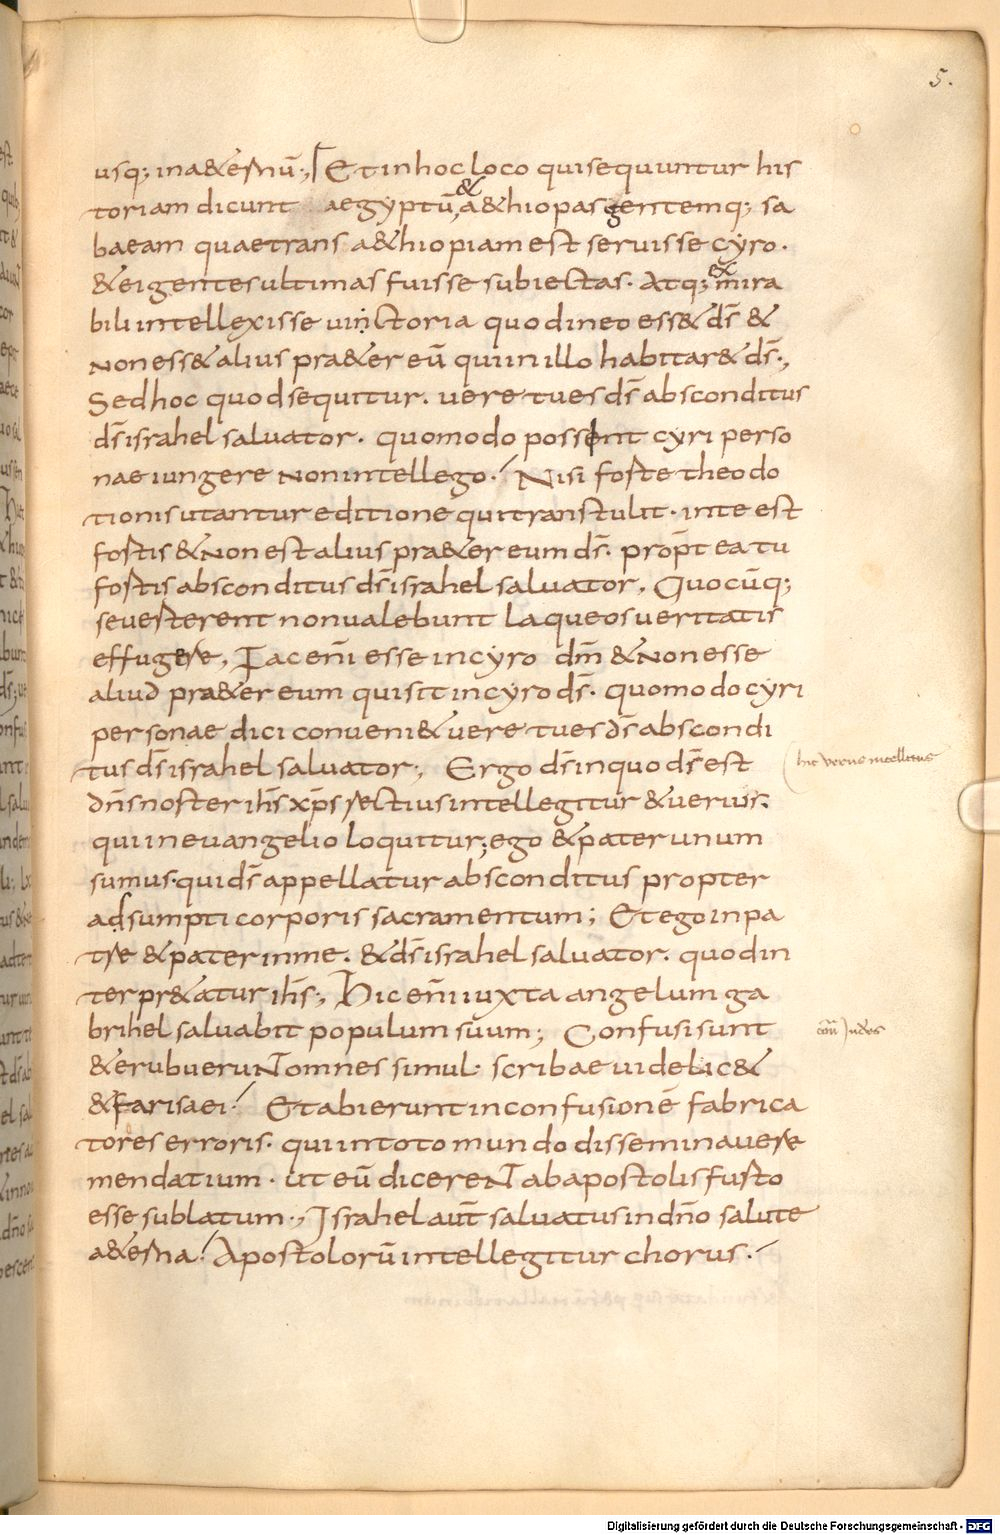 5.
usq; in a&ernū., Et in hoc loco qui sequuntur his
toriam dicunt aegyptū, & a&hiopas gentemq; sa
baeam quae trans a&hiopiam est seruisse cyro.
& ei gentes ultimas fuisse subiectas. Atq; ex mira
bili intellexisse uinctoria quod in eo ess& dś &
Non ess& alius pra&er eū qui in illo habitar& dś.,
Sed hoc quod sequitur. uere tu es dś absconditus
dś israhel saluator. quomodo possent cyri perso
nae iungere Non intellego. Nisi forte theodo
tionis utantur editione qui transtulit. in te est
fortis & Non est alius pra&er eum dś. propt ea tu
fortis absconditus dś israhel saluator. Quocūq;
se uerterent non ualebunt laqueos ueritatis
effugere, Fac eni esse in cyro dm̄ & Non esse
aliud pra&er eum qui sit in cyro dś. quomodo cyri
personae dici conueni& uere tu es dś abscondi
tus dś israhel saluator; Ergo dś in quo dś est
dn̄s noster ihs̄ xp̄s rectius intellegitur & uerius;
hic verus intellectus
qui in euangelio loquitur; ego & pater unum
sumus. qui dś appellatur absconditus propter
adsumpti corporis sacramentum; Et ego in pa
tre & pater in me. & dś israhel saluator. quod in
terpr&atur ihs̄; Hic eni iuxta angelum ga
brihel saluabit populum suum; Confusi sunt
& erubueruNt omnes simul. scribae uidelic&
& farisaei. Et abierunt in confusionē fabrica
tores erroris. qui in toto mundo disseminauere
mendatium. ut eū dicereNt ab apostolis furto
esse sublatum., Israhel aut̄ saluatus in dn̄o salute
a&erna. Apostolorū intellegitur chorus.
Digitalisierung gefördert durch die Deutsche Forschungsgemeinschaft - DFG